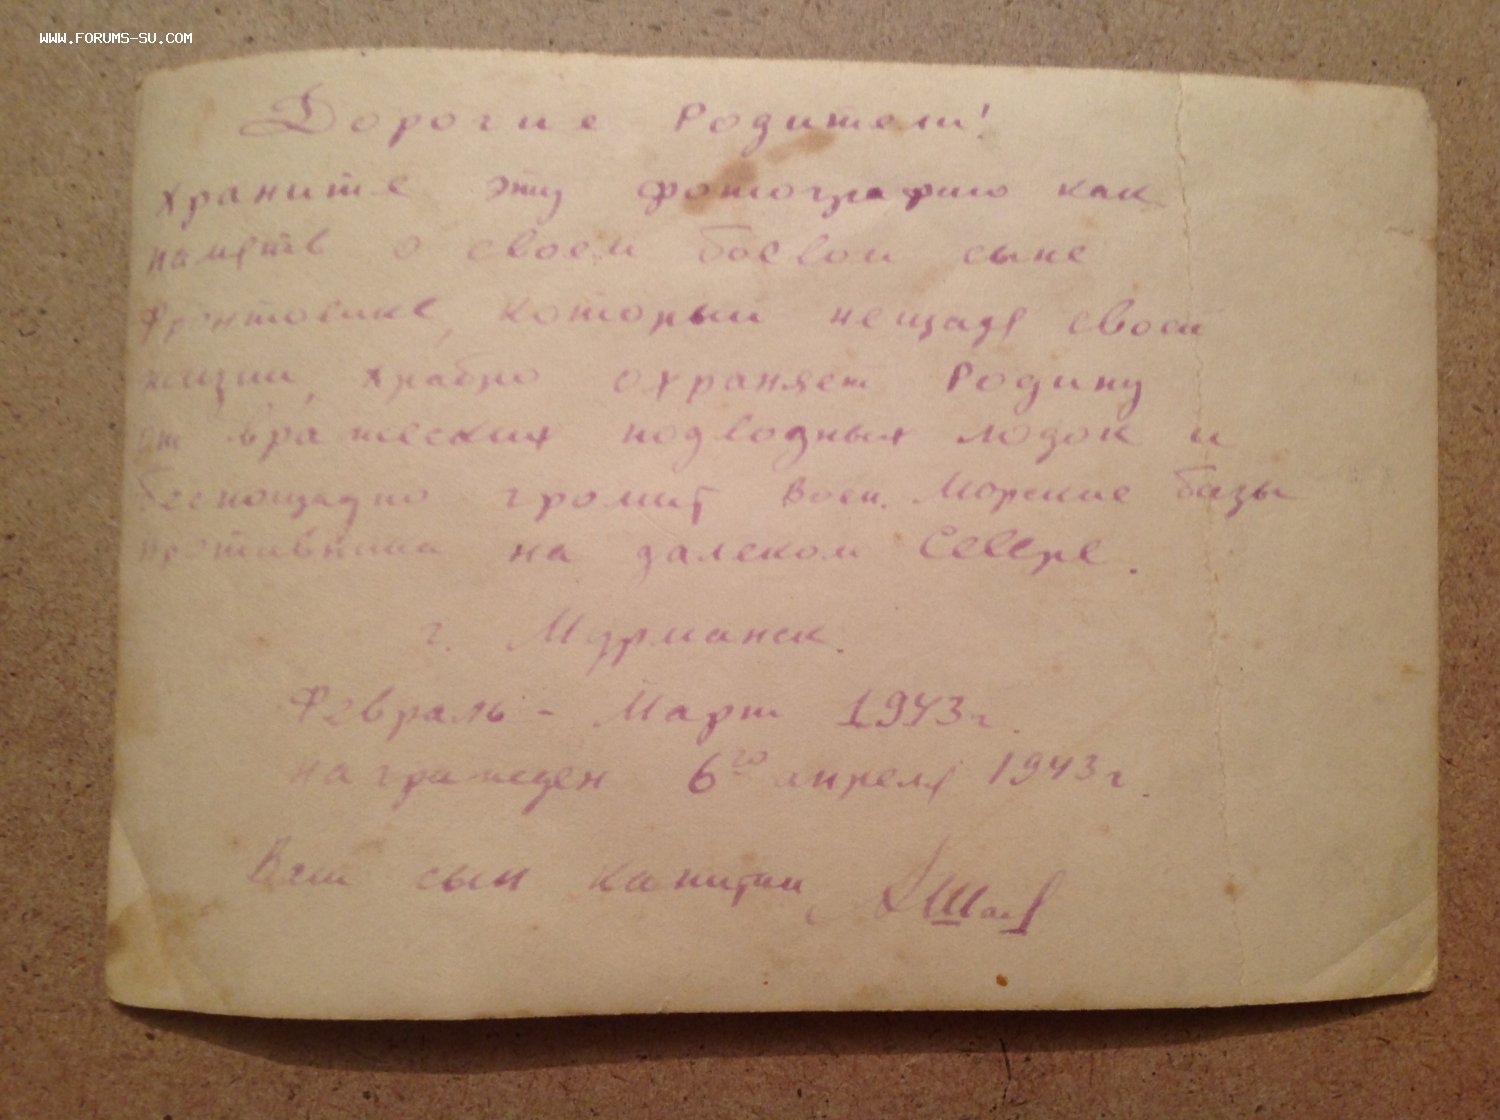 WWW.FORUMS-SU.COM
Дорогие Родители!
Храните эту фотографию как
память о своем боевом сыне
фронтовике, который нещадя своей
жизни, храбро охраняет Родину
от вражеских подводных лодок и
беспощадно громит Воен. Морские базы
противника на далеком Севере.
г. Мурманск.
Февраль - Март 1943г.
награжден 6го апреля 1943г.
Ваш сын капитан